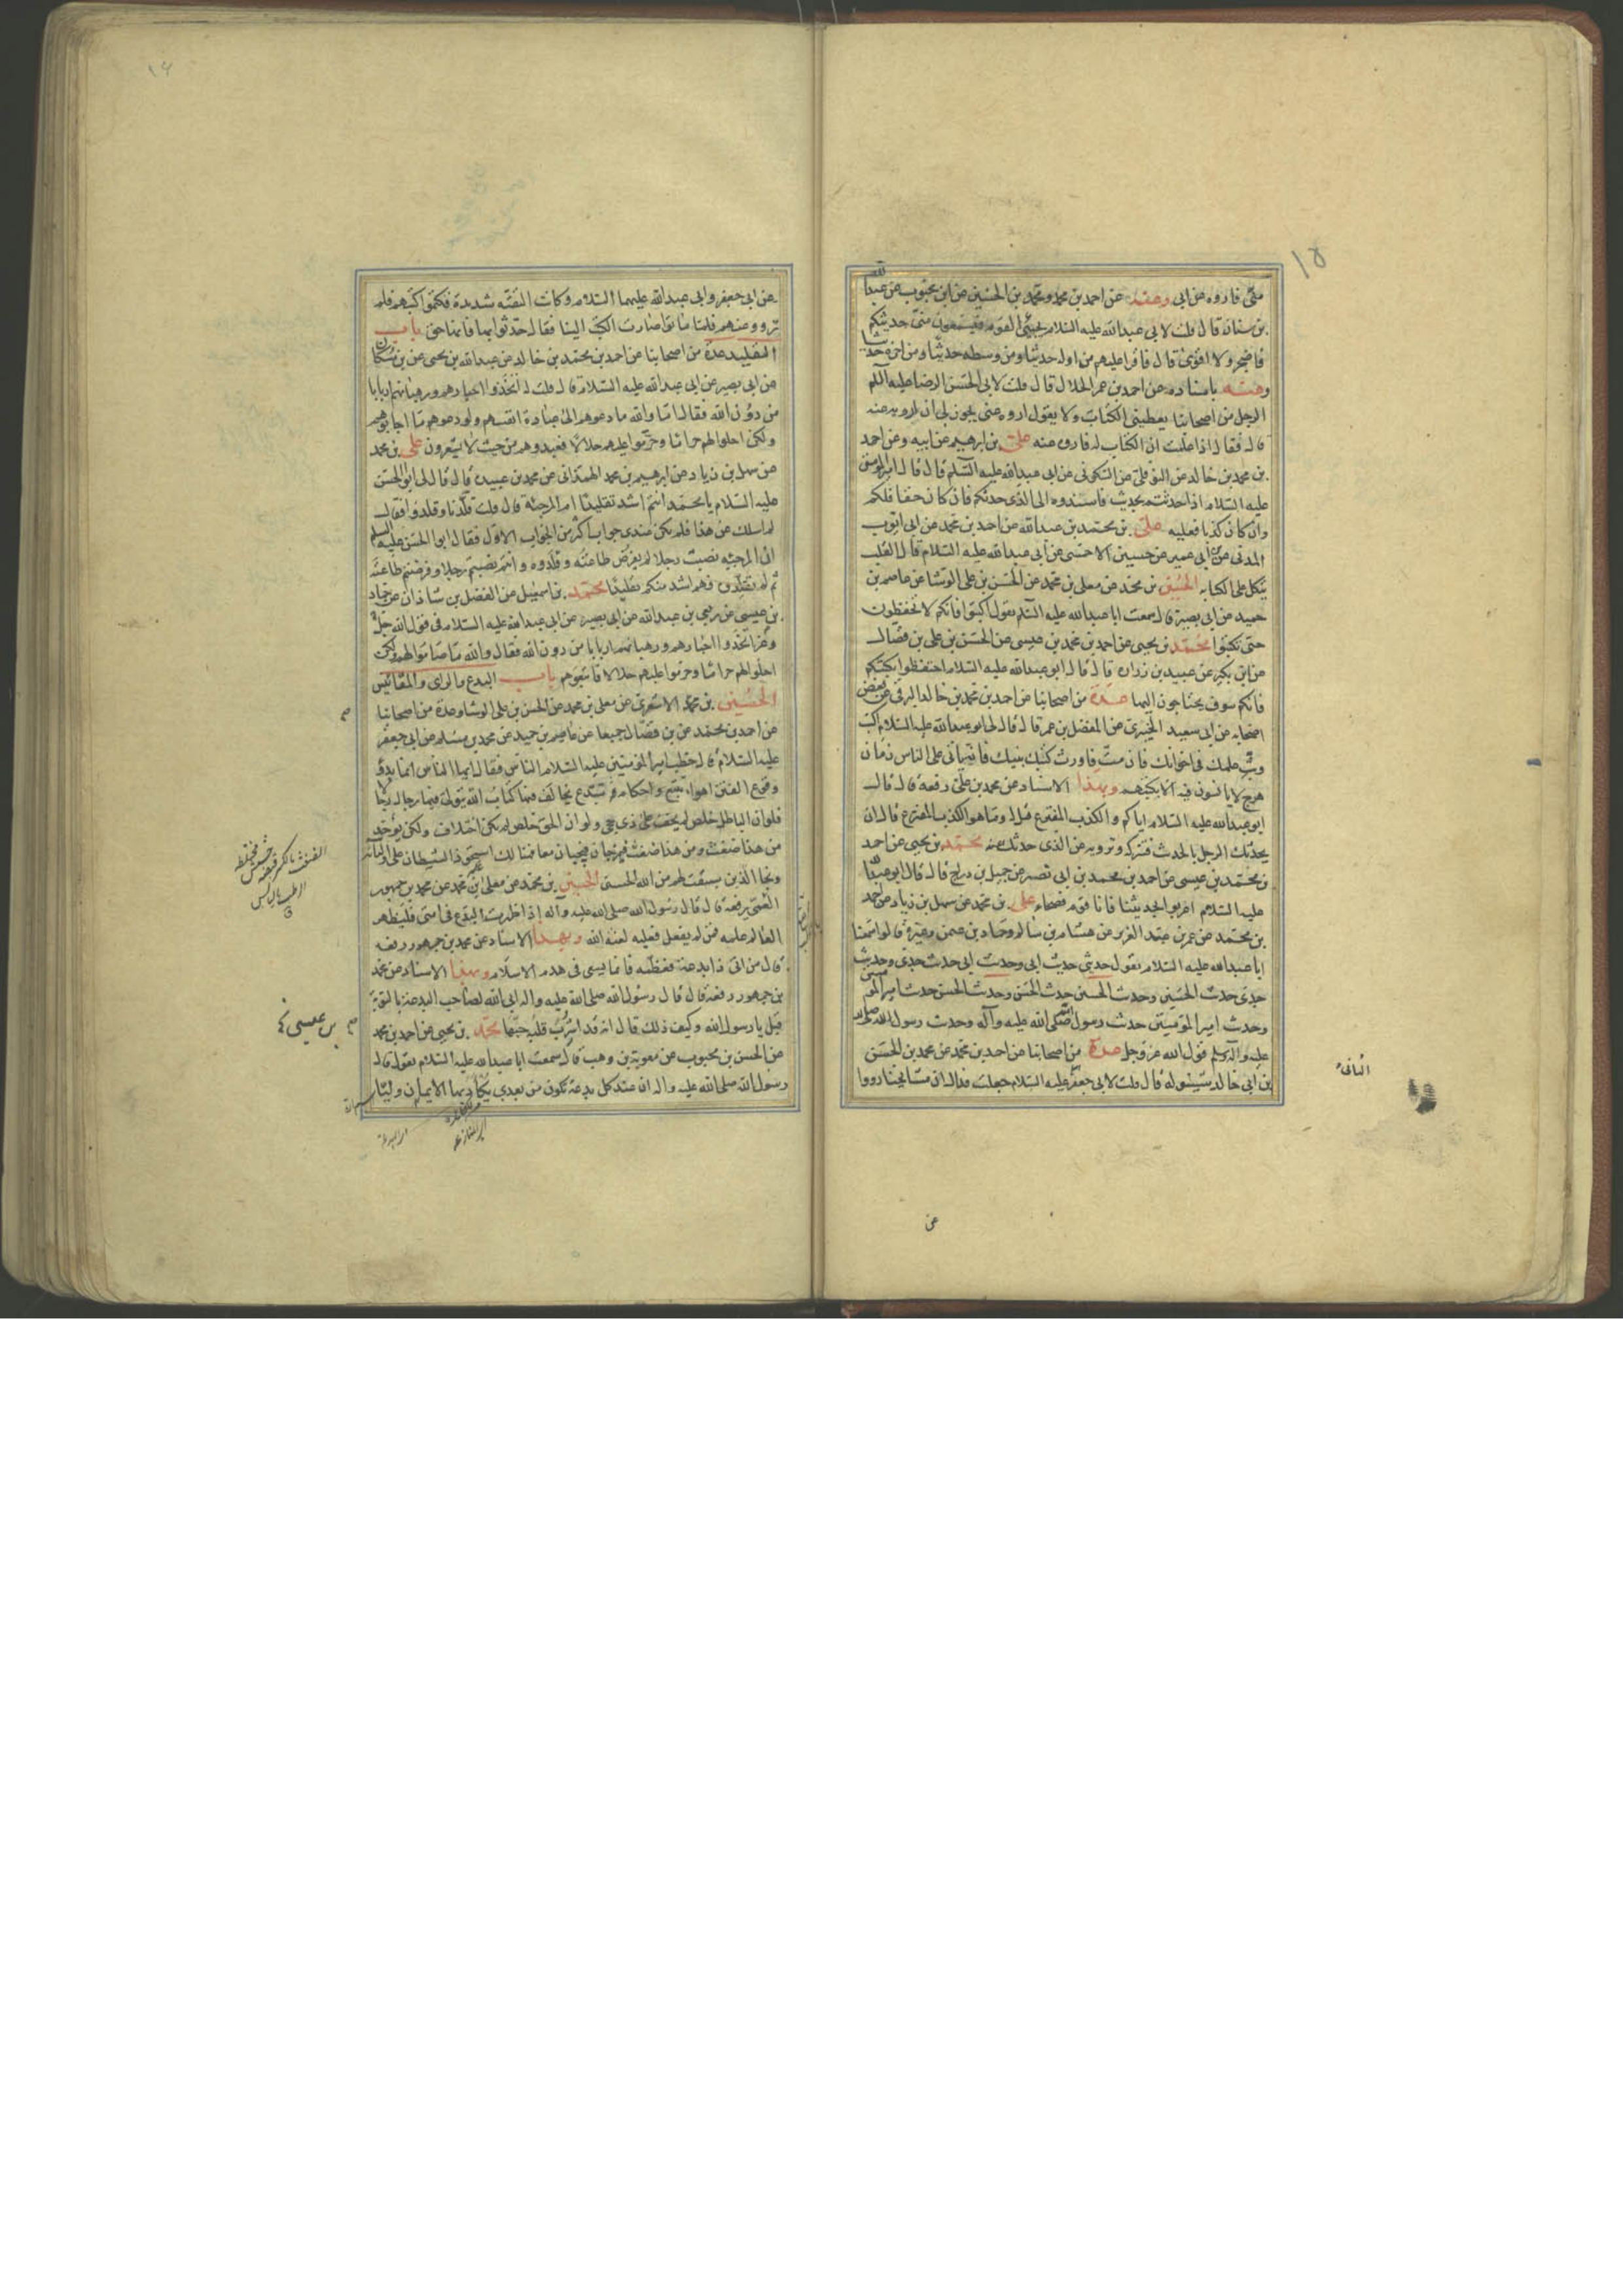 ١٥
منّى فاروه عن ابى وعنه عن احمد بن محمد ومحمد بن الحسين عن ابن محبوب عن عبد الله
بن سنان قال قلت لابى عبد الله عليه السلام يجيئنى القوم فيستمعون منى حديثكم
فاضجر ولا اقوى قال فاقرا عليهم من اوله حديثا ومن وسطه حديثا ومن اخره حديثا
وعنه باسناده عن احمد بن عمر الحلال قال قلت لابى الحسن الرضا عليه السلم
الرجل من اصحابنا يعطينى الكتاب ولا يقول اروه عنى يجوز لى ان ارويه عنه
قال فقال اذا علمت ان الكتاب له فاروه عنه على بن ابرهيم عن ابيه وعن احمد
بن محمد بن خالد عن النوفلى عن السكونى عن ابى عبد الله عليه السلم قال قال امير المومنين
عليه السلام اذا حدثتم بحديث فاسندوه الى الذى حدثكم فان كان حقا فلكم
وان كان كذبا فعليه على بن محمد بن عبد الله عن احمد بن محمد عن ابى ايوب
المدنى عن ابن ابى عمير عن حسين الاحمسى عن ابى عبد الله عليه السلام قال القلب
يتكل على الكتابه الحسين بن محمد عن معلى بن محمد عن الحسن بن على الوشا عن عاصم بن
حميد عن ابى بصير قال سمعت ابا عبد الله عليه السلم يقول اكتبوا فانكم لا تحفظون
حتى تكتبوا محمد بن يحيى عن احمد بن محمد بن عيسى عن الحسن بن على بن فضال
عن ابن بكير عن عبيد بن زراره قال قال ابو عبد الله عليه السلام احتفظوا بكتبكم
فانكم سوف تحتاجون اليها عدة من اصحابنا عن احمد بن محمد بن خالد البرقى عن بعض
اصحابه عن ابى سعيد الخيبرى عن المفضل بن عمر قال قال لى ابو عبد الله عليه السلام اكتب
وبثّ علمك فى اخوانك فان متّ فاورث كتبك بنيك فانه ياتى على الناس زمان
هرج لا يانسون فيه الا بكتبهم وبهذا الاسناد عن محمد بن على رفعه قال قال
ابو عبد الله عليه السلام اياكم والكذب المفترع قيل له وما هو الكذب المفترع قال ان
يحدثك الرجل بالحديث فتتركه وترويه عن الذى حدثك عنه محمد بن يحيى عن احمد
بن محمد بن عيسى عن احمد بن محمد بن ابى نصر عن جميل بن دراج قال قال ابو عبد الله
عليه السلام اعربوا حديثنا فانا قوم فصحاء على بن محمد عن سهل بن زياد عن احمد
بن محمد عن عمر بن عبد العزيز عن هشام بن سالم وحماد بن عثمن وغيره قالوا سمعنا
ابا عبد الله عليه السلام يقول حديثى حديث ابى وحديث ابى حديث جدى وحديث
جدى حديث الحسين وحديث الحسين حديث الحسن وحديث الحسن حديث امير المومنين
وحديث امير المومنين حديث رسول الله صلى الله عليه وآله وحديث رسول الله صلى الله
عليه واله وسلم قول الله عز وجل عدة من اصحابنا عن احمد بن محمد عن محمد بن الحسن
بن ابى خالد شينوله قال قلت لابى جعفر عليه السلام جعلت فداك ان مشايخنا رووا
الثانى
عن
١٦
عن ابى جعفر وابى عبد الله عليهما السلام وكانت التقيه شديدة فكتموا كتبهم فلم
ترووعنهم فلما ماتوا صارت الكتب الينا فقال حدثوا بها فانها حق باب
التقليد عدة من اصحابنا عن احمد بن محمد بن خالد عن عبد الله بن يحيى عن بن مسكان
عن ابى بصير عن ابى عبد الله عليه السلام قال قلت له اتخذوا احبارهم ورهبانهم اربابا
من دون الله فقال اما والله ما دعوهم الى عبادة انفسهم ولو دعوهم ما اجابوهم
ولكن احلوا لهم حراما وحرموا عليهم حلالا فعبدوهم من حيث لا يشعرون على بن محمد
عن سهل بن زياد عن ابرهيم بن محمد الهمذانى عن محمد بن عبيده قال قال لى ابو الحسن
عليه السلام يا محمد انتم اشد تقليدا ام المرجئة قال قلت قلدنا وقلدوا فقال
لم اسلك عن هذا فلم يكن عندى جواب اكثر من الجواب الاول فقال ابو الحسن عليه السلم
ان المرجئه نصبت رجلا لم يفرض طاعته وقلدوه وانتم نصبتم رجلا وفرضتم طاعته
ثم لم تقلدوه فهم اشد منكم تقليدا محمد بن اسمعيل عن الفضل بن شاذان عن حماد
بن عيسى عن ربعى بن عبد الله عن ابى بصير عن ابى عبد الله عليه السلام فى قول الله جل
وعز اتخذوا احبارهم ورهبانهم اربابا من دون الله فقال والله ما صاموا لهم ولكن
احلوا لهم حراما وحرموا عليهم حلالا فاتبعوهم باب البدع والراى والمقائيس
الحسين بن محمد الاشعرى عن معلى بن محمد عن الحسن بن على الوشا وعدة من اصحابنا
عن احمد بن محمد عن بن فضال جميعا عن عاصم بن حميد عن محمد بن مسلم عن ابى جعفر
عليه السلام قال خطب امير المومنين عليه السلام الناس فقال ايها الناس انما بدؤ
وقوع الفتن اهواء تتبع واحكام تبتدع يخالف فيها كتاب الله يتولى فيها رجال رجالا
فلو ان الباطل خلص لم يخف على ذى حجى ولو ان الحق خلص لم يكن اختلاف ولكن يؤخذ
من هذا ضغث ومن هذا ضغث فيمزجان فيجيان معا فهنالك استحوذ الشيطان على اوليائه
ونجا الذين سبقت لهم من الله الحسنى الحسين بن محمد عن معلى بن محمد عن محمد بن جمهور
العمى يرفعه قال قال رسول الله صلى الله عليه وآله إذا ظهرت البدع فى امتى فليظهر
العالم علمه فمن لم يفعل فعليه لعنة الله وبهذا الاسناد عن محمد بن جمهور رفعه
قال من اتى ذا بدعة فعظمه فانما يسعى فى هدم الاسلام وبهذا الاسناد عن محمد
بن جمهور رفعه قال قال رسول الله صلى الله عليه واله ابى الله لصاحب البدعة بالتوبة
قيل يا رسول الله وكيف ذلك قال انه قد اشرب قلبه حبها محمد بن يحيى عن احمد بن محمد
عن الحسن بن محبوب عن معوية بن وهب قال سمعت ابا عبد الله عليه السلام يقول قال
رسول الله صلى الله عليه واله ان عند كل بدعة تكون من بعدى يكاد بها الايمان وليا
بن عيسى